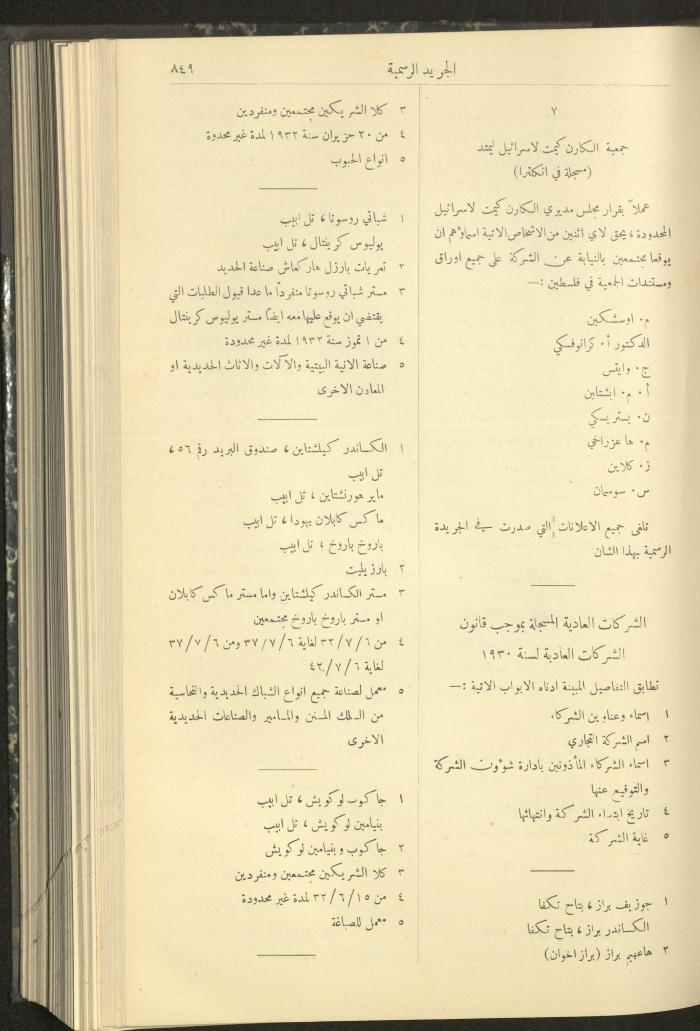 الجريد الرسمية
٨٤٩
٧
جمعية الكارن كيمت لاسرائيل ليمتد
(مسجلة في انكلترا)
عملاً بقرار مجلس مديري الكارن كيمت لاسرائيل
المحدودة ، يحق لاي اثنين من الاشخاص الاتية اسماؤهم ان
يوقعا مجتمعين بالنيابة عن الشركة على جميع اوراق
ومستندات الجمعية في فلسطين :—
م٠ اوسشكين
الدكتور أ٠ كرانوفسكي
ج٠ وايتس
أ٠ م٠ ابشتاين
ن٠ بستريسكي
م٠ ها عزراخي
ز٠ كلاين
س٠ سوسمان
تلغى جميع الاعلانات التي صدرت في الجريدة
الرسمية بهذا الشان
الشركات العادية المسجلة بموجب قانون
الشركات العادية لسنة ١٩٣٠
تطابق التفاصيل المبينة ادناه الابواب الاتية :—
١ اسماء وعناوين الشركاء
٢ اسم الشركة التجاري
٣ اسماء الشركاء المأذونين بادارة شوؤون الشركة
والتوقيع عنها
٤ تاريخ ابتداء الشركة وانتهائها
٥ غاية الشركة
١ جوزيف براز ، بتاح تكفا
الكساندر براز ، بتاح تكفا
٢ هاعهيم براز (براز اخوان)
٣ كلا الشريكين مجتمعين ومنفردين
٤ من ٢٠ حزيران سنة ١٩٣٢ لمدة غير محدوة
٥ انواع الحبوب
١ شباتي روسوتا ، تل ابيب
يوليوس كرينتال ، تل ابيب
٢ تعريات بارزل هاركعاش صناعة الحديد
٣ مستر شباتي روسوتا منفرداً ما عدا قبول الطلبات التي
يقتضي ان يوقع عليها معه ايضاً مستر يوليوس كرينتال
٤ من ١ تموز سنة ١٩٣٢ لمدة غير محدودة
٥ صناعة الانية البيتية والآلات والاثاث الحديدية او
المعادن الاخرى
١ الكساندر كيلشتاين ، صندوق البريد رقم ٥٦ ،
تل ابيب
ماير هورنشتاين ، تل ابيب
ماكس كابلان يهودا ، تل ابيب
باروخ باروخ ، تل ابيب
٢ بارزيليت
٣ مستر الكساندر كيلشتاين واما مستر ماكس كابلان
او مستر باروخ باروخ مجتمعين
٤ من ٣٢/٧/٦ لغاية ٣٧/٧/٦ ومن ٣٧/٧/٦
لغاية ٤٢/٧/٦
٥ معمل لصناعة جميع انواع الشباك الحديدية والنحاسية
من السلك المسنن والمسامير والصناعات الحديدية
الاخرى
١ جاكوب لوكويش ، تل ابيب
بنيامين لوكويش ، تل ابيب
٢ جاكوب وبنيامين لوكويش
٣ كلا الشريكين مجتمعين ومنفردين
٤ من ٣٢/٦/١٥ لمدة غير محدودة
٥ معمل للصباغة